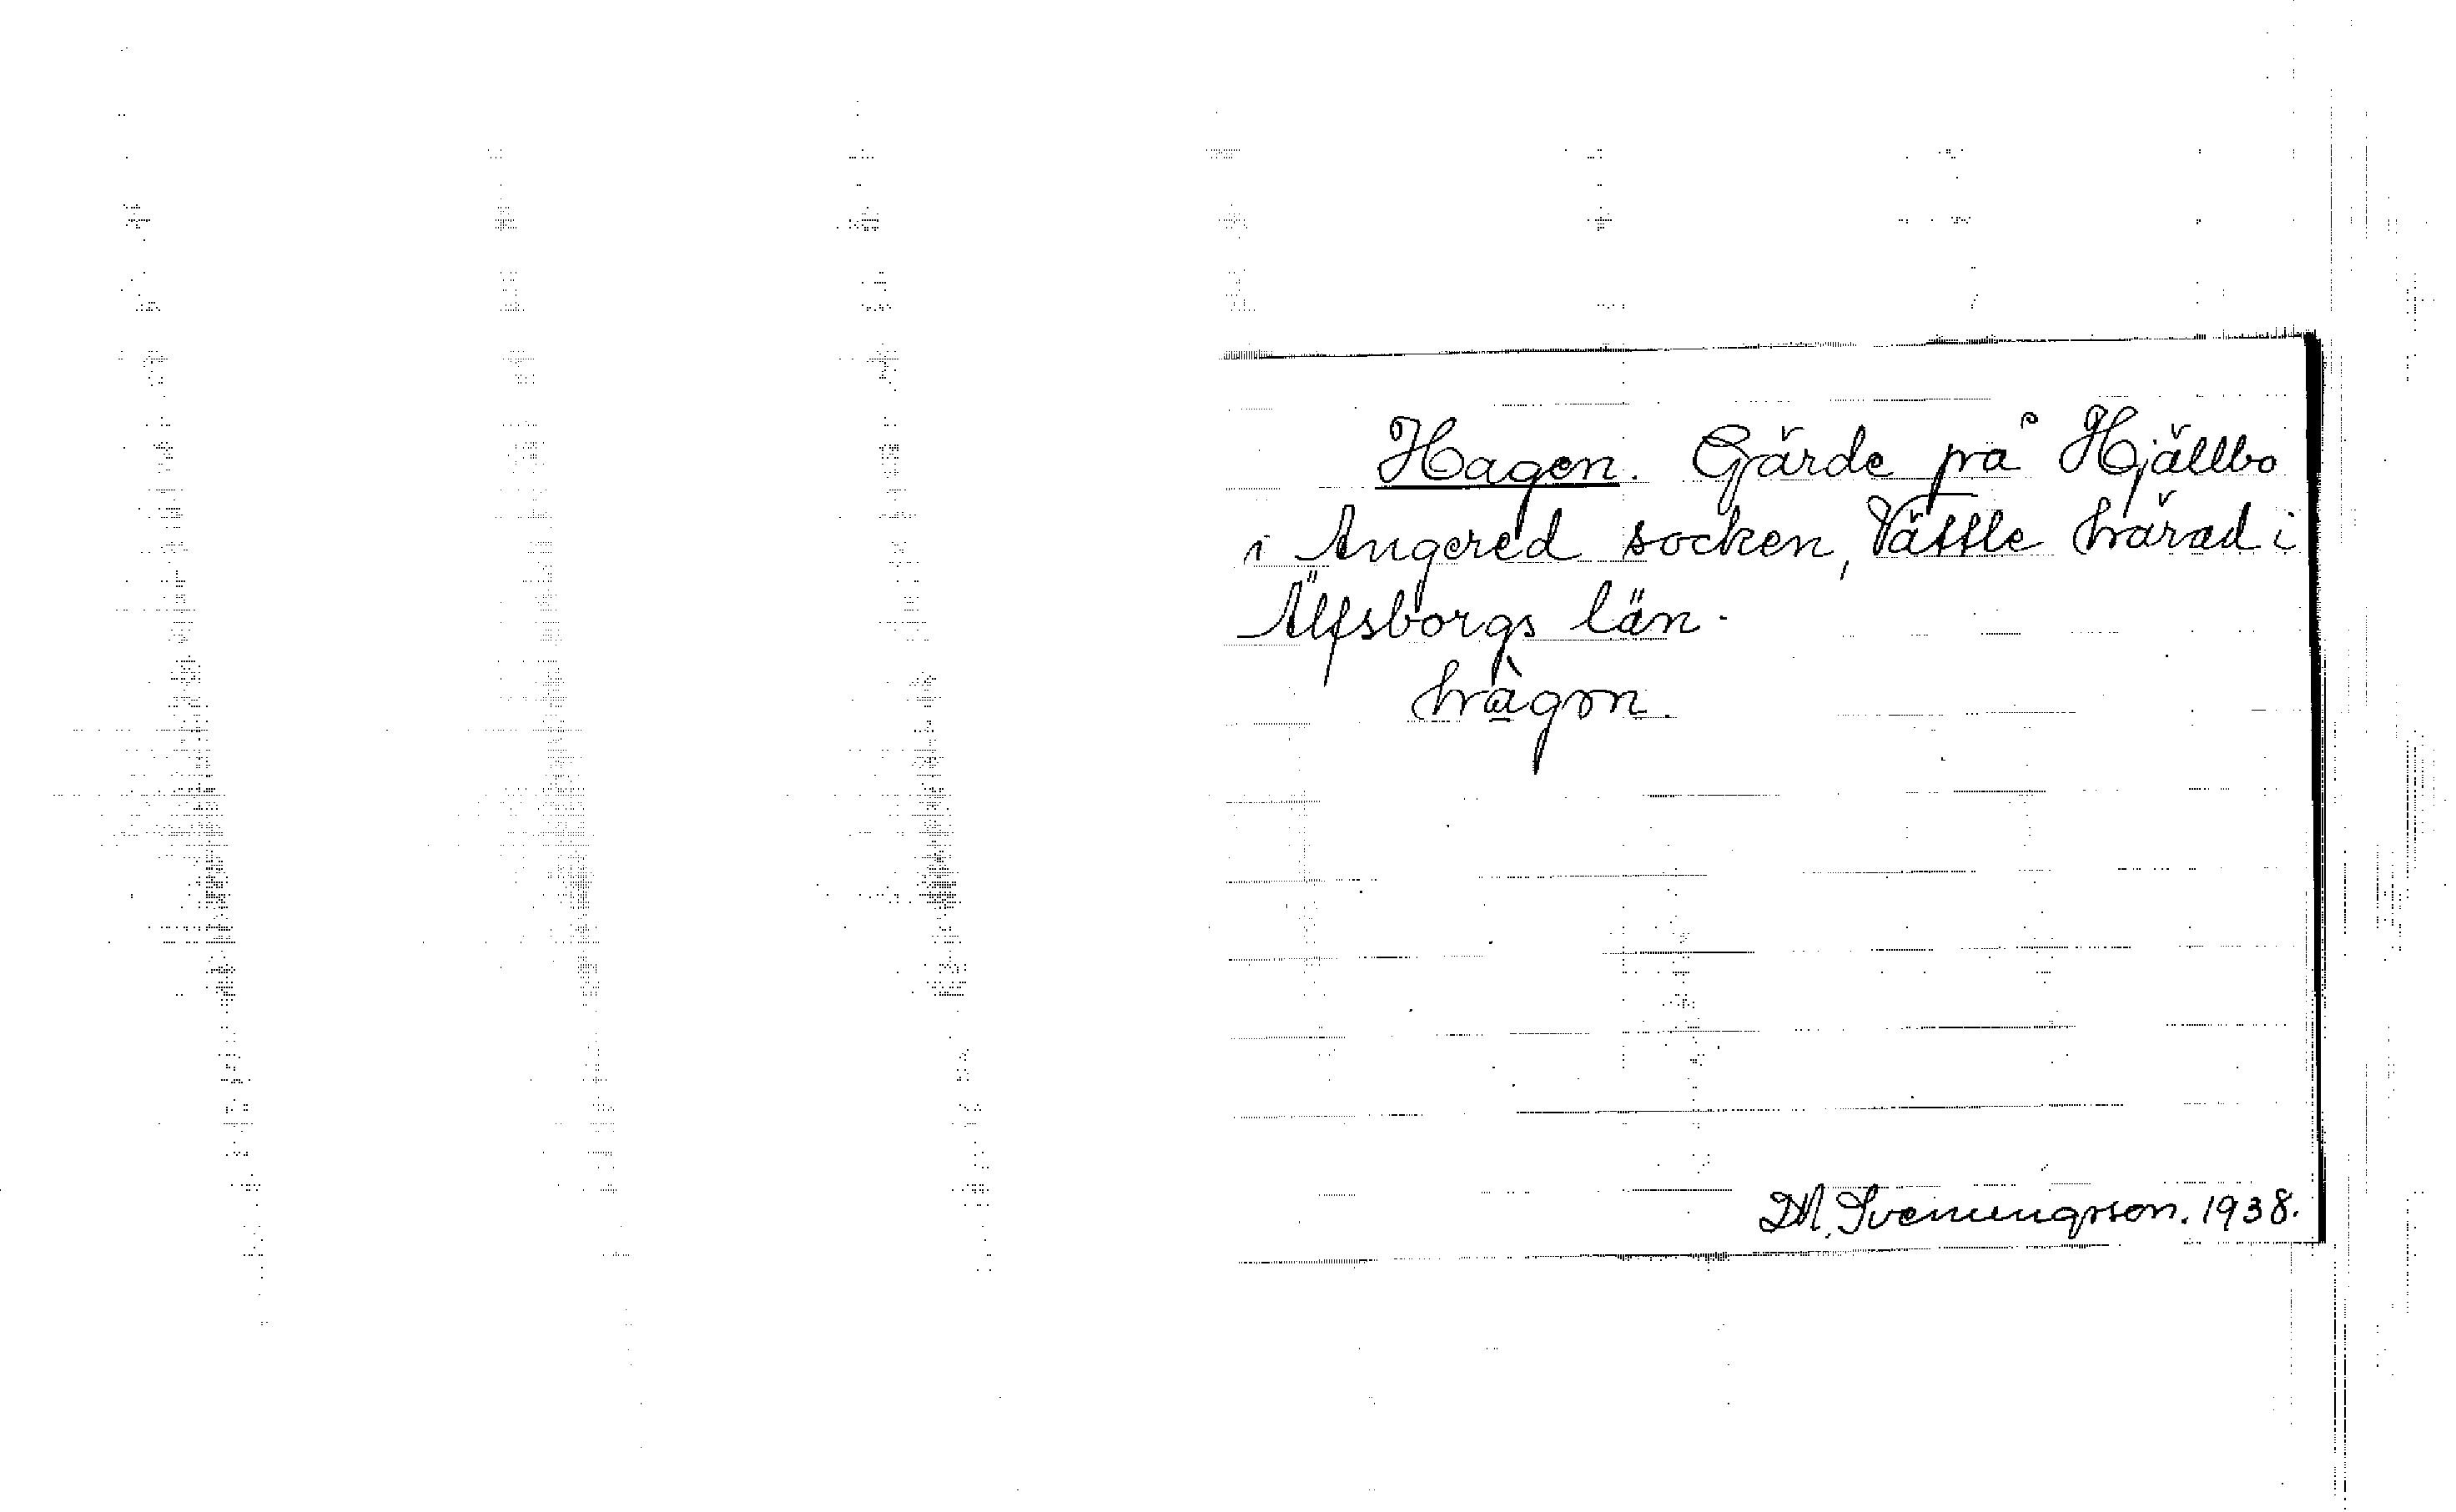 Hagen. Gärde på Hjällbo
i Angered socken, Vättle härad i
Älfsborgs län.
hàgɒn.
D.M. Svenungsson. 1938.